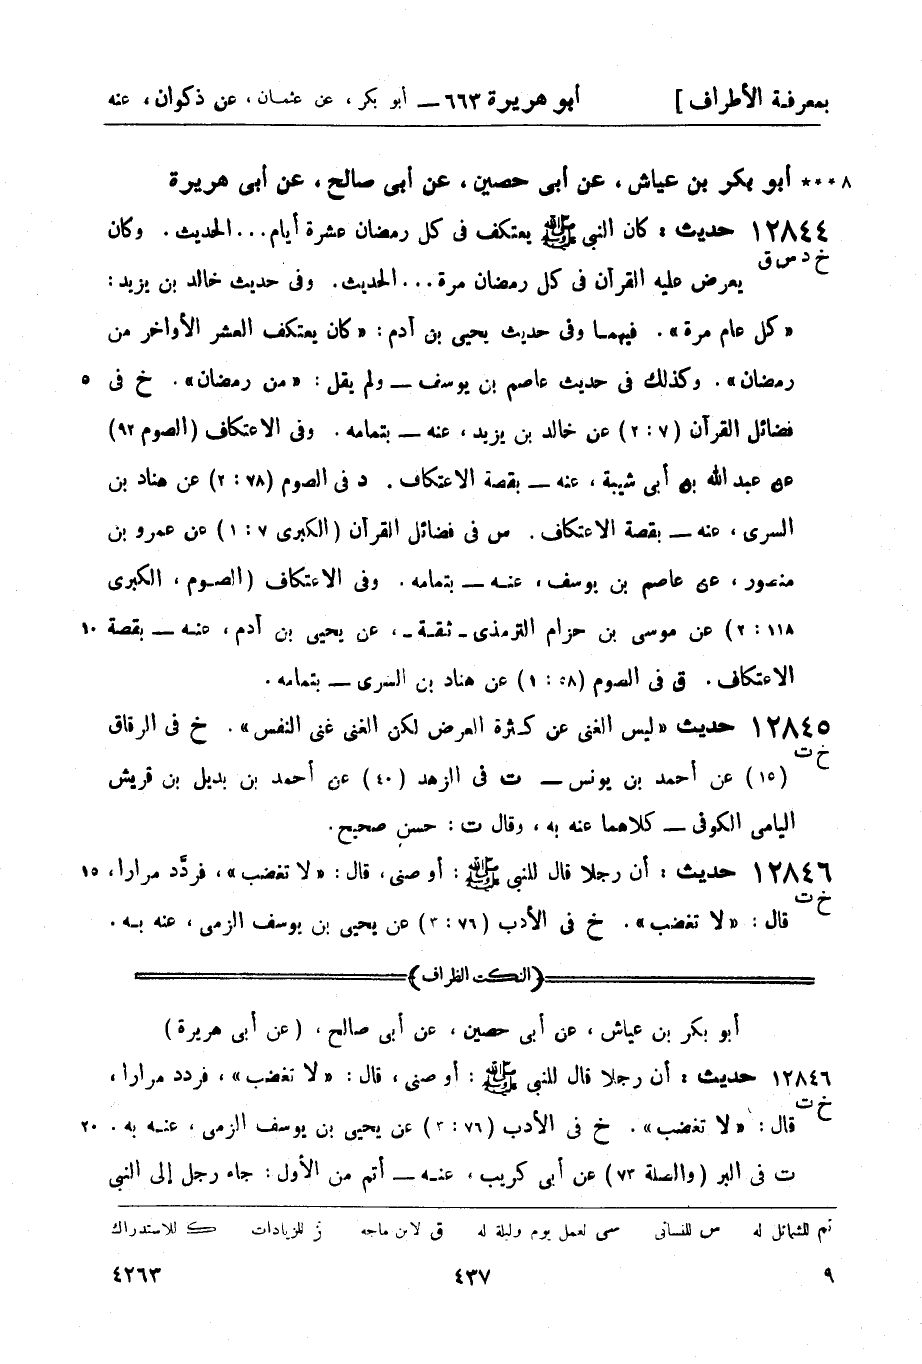 بمعرفة الأطراف] أبو هريرة ٦٦٣ — أبو بكر، عن عثمان، عن ذكوان، عنه
٨ ***٠ أبو بكر بن عياش، عن أبى حصين، عن أبى صالح، عن أبى هريرة
١٢٨٤٤ حديث: كان النبي ﷺ يعتكف فى كل رمضان عشرة أيام... الحديث. وكان
خ د س ق
يعرض عليه القرآن فى كل رمضان مرة... الحديث. وفى حديث خالد بن يزيد:
«كل عام مرة». فيهما وفى حديث يحيى بن آدم: «كان يعتكف العشر الأواخر من
رمضان». وكذلك فى حديث عاصم بن يوسف — ولم يقل: «من رمضان». خ فى ٥
فضائل القرآن (٧: ٢) عن خالد بن يزيد، عنه — بتمامه. وفى الاعتكاف (الصوم ٩٢)
عن عبد الله بن أبى شيبة، عنه — بقصة الاعتكاف. د فى الصوم (٧٨: ٢) عن هناد بن
السرى، عنه — بقصة الاعتكاف. س فى فضائل القرآن (الكبرى ٧: ١) عن عمرو بن
منصور، عن عاصم بن يوسف، عنه — بتمامه. وفى الاعتكاف (الصوم، الكبرى
١١٨: ٢) عن موسى بن حزام الترمذى - ثقة -، عن يحيى بن آدم، عنه — بقصة ١٠
الاعتكاف. ق فى الصوم (٥٨: ١) عن هناد بن السرى — بتمامه.
١٢٨٤٥ حديث «ليس الغنى عن كثرة العرض لكن الغنى غنى النفس». خ فى الرقاق
خ ت
(١٥) عن أحمد بن يونس — ت فى الزهد (٤٠) عن أحمد بن بديل بن قريش
اليامى الكوفى — كلاهما عنه به، وقال ت: حسن صحيح.
١٢٨٤٦ حديث: أن رجلا قال للنبى ﷺ: أوصنى، قال: «لا تغضب»، فردَّد مرارا، ١٥
خ ت
قال: «لا تغضب». خ فى الأدب (٧٦: ٣) عن يحيى بن يوسف الزمى، عنه به.
(النكت الظراف)
أبو بكر بن عياش، عن أبى حصين، عن أبى صالح، (عن أبى هريرة)
١٢٨٤٦ حديث: أن رجلا قال للنبى ﷺ: أوصنى، قال: «لا تغضب»، فردد مرارا،
خ ت
قال: «لا تغضب». خ فى الأدب (٧٦: ٣) عن يحيى بن يوسف الزمى، عنه به. ٢٠
ت فى البر (والصلة ٧٣) عن أبى كريب، عنه — أتم من الأول: جاء رجل إلى النبى
تم للشمائل له س للنسائى سى لعمل يوم وليلة له ق لابن ماجه ز للزيادات ك للاستدراك
٩ ٤٣٧ ٤٢٦٣